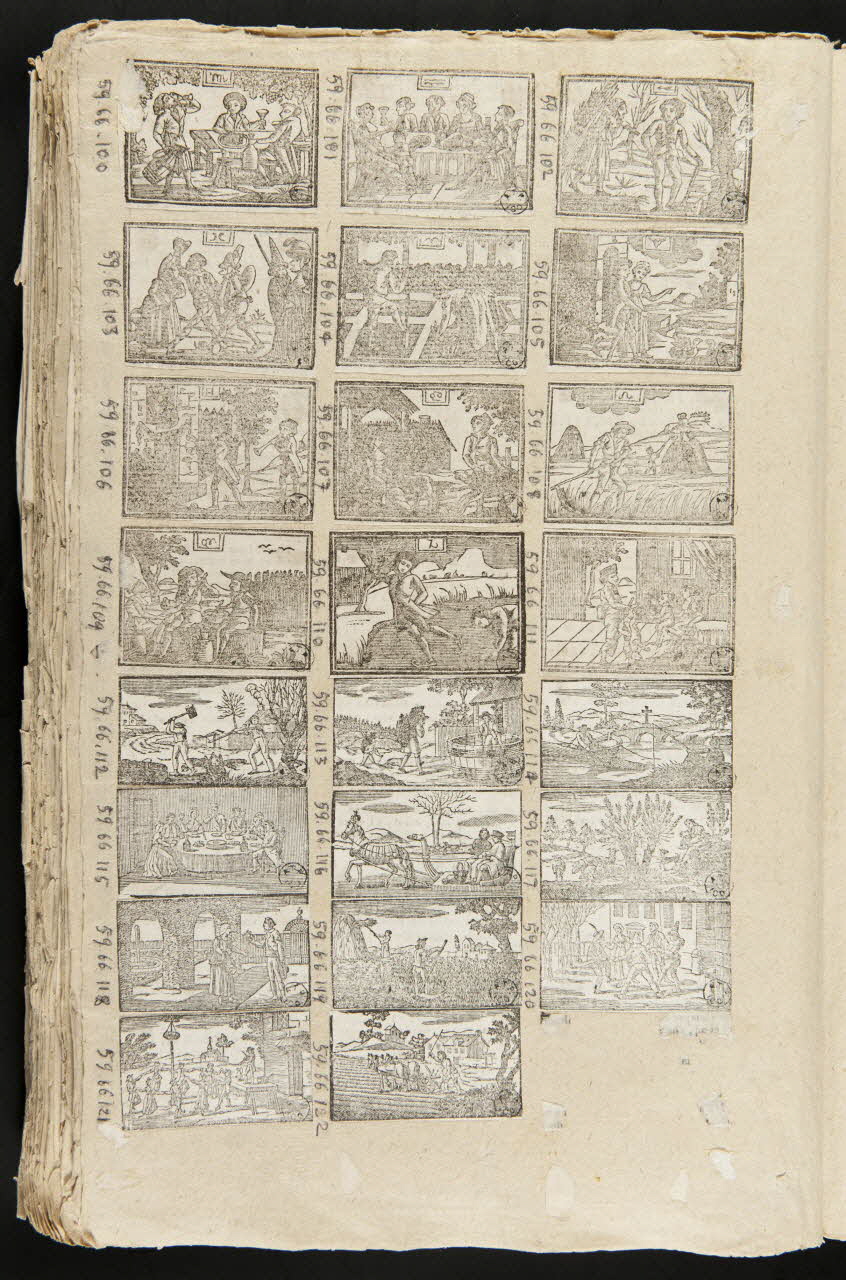 59.66.100
59 66 101
59 66 102
59.66.103
59.66.104
59.66 105
59 66.106
59.66 107
59 66 108
59.66 109
59.66 110
59.66 111
59.66.112
59.66 113
59.66 114
59 66 115
59.66 116
59.66 117
59.66 118
59.66 119
59 66 120
59 66 121
59.66 122